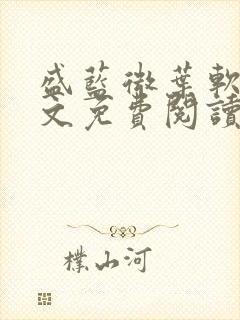 盛藍微葉軟
文免費閱讀
樸山河